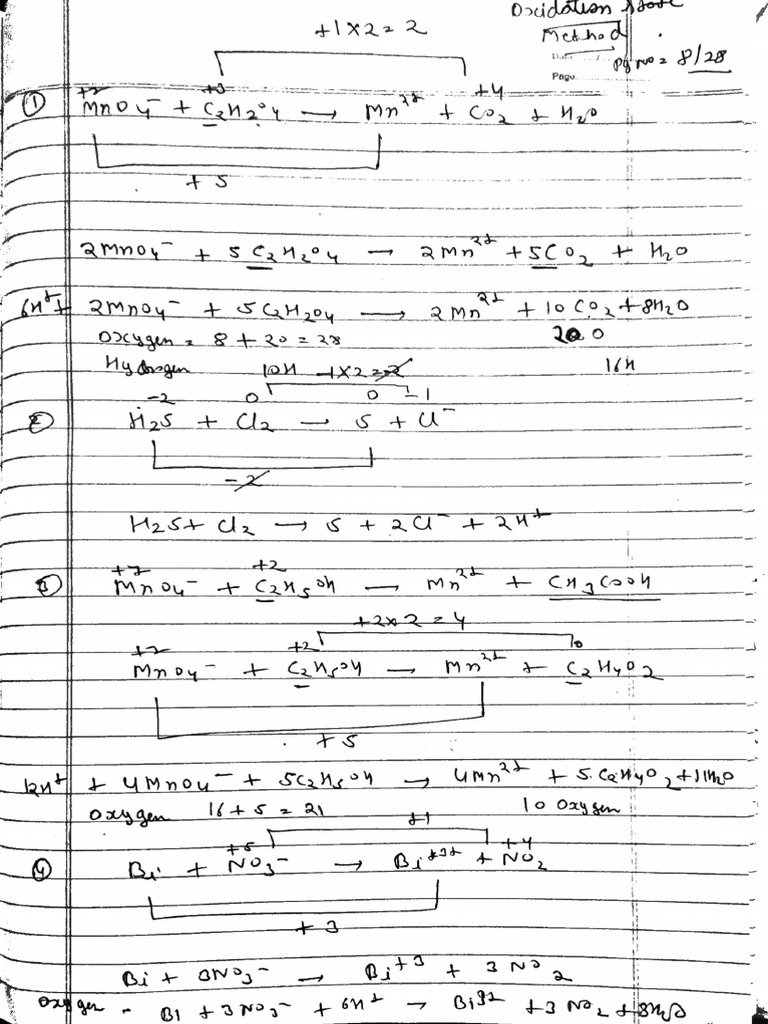 Oxidation State
Method.
+1×2=2
Pg No = 8/28
Page
+7 +3 +4
① MnO4⁻ + C2H2O4 → Mn²⁺ + CO2 + H2O
+5
2MnO4⁻ + 5C2H2O4 → 2Mn²⁺ + 5CO2 + H2O
6H⁺ + 2MnO4⁻ + 5C2H2O4 → 2Mn²⁺ + 10CO2 + 8H2O
Oxygen = 8 + 20 = 28 20 O
Hydrogen 10H -1×2=-2 16H
-2 0 0 -1
② H2S + Cl2 → S + Cl⁻
-2
H2S + Cl2 → S + 2Cl⁻ + 2H⁺
+7 +2
③ MnO4⁻ + C2H5OH → Mn²⁺ + CH3COOH
+2×2=4
+7 +2 0
MnO4⁻ + C2H5OH → Mn²⁺ + C2H4O2
+5
12H⁺ + 4MnO4⁻ + 5C2H5OH → 4Mn²⁺ + 5C2H4O2 + 11H2O
Oxygen 16+5=21 10 Oxygen
+1
+5 +4
④ Bi + NO3⁻ → Bi⁺³⁺ + NO2
+3
Bi + 3NO3⁻ → Bi⁺³ + 3NO2
Oxygen - Bi + 3NO3⁻ + 6H⁺ → Bi³⁺ + 3NO2 + 3H2O